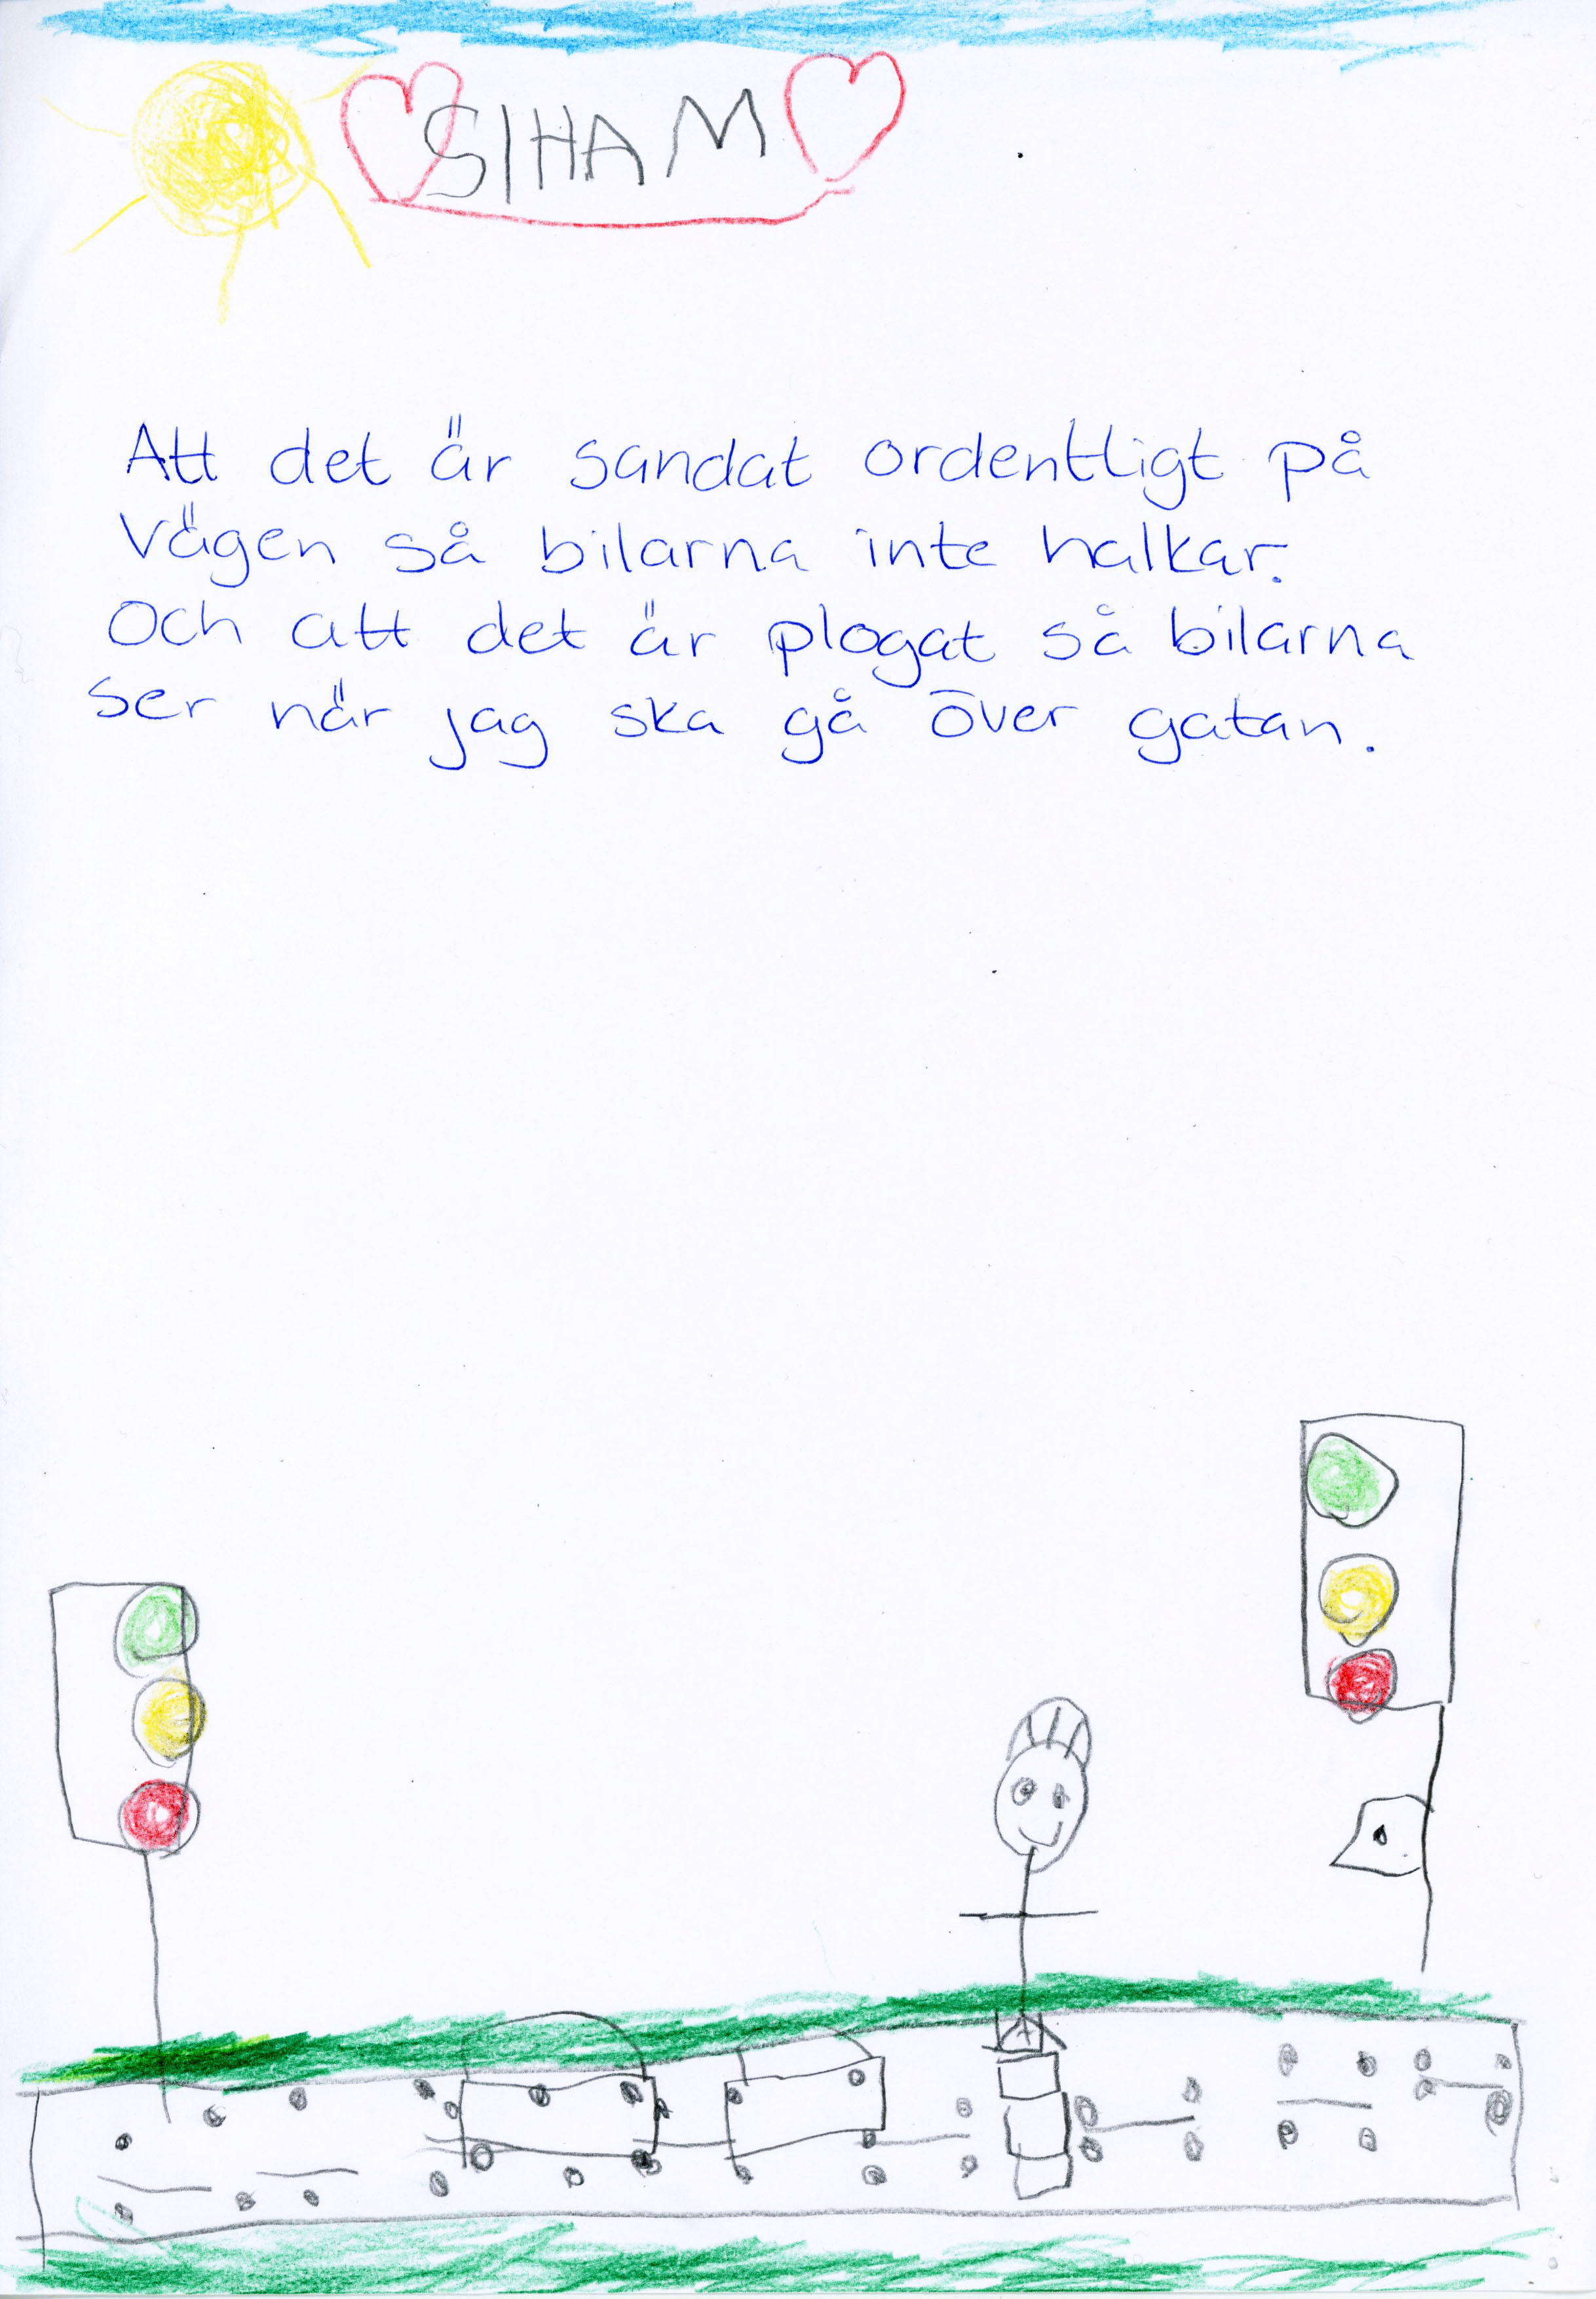 SIHAM
Att det är sandat ordentligt på
vägen så bilarna inte halkar.
Och att det är plogat så bilarna
ser när jag ska gå över gatan.